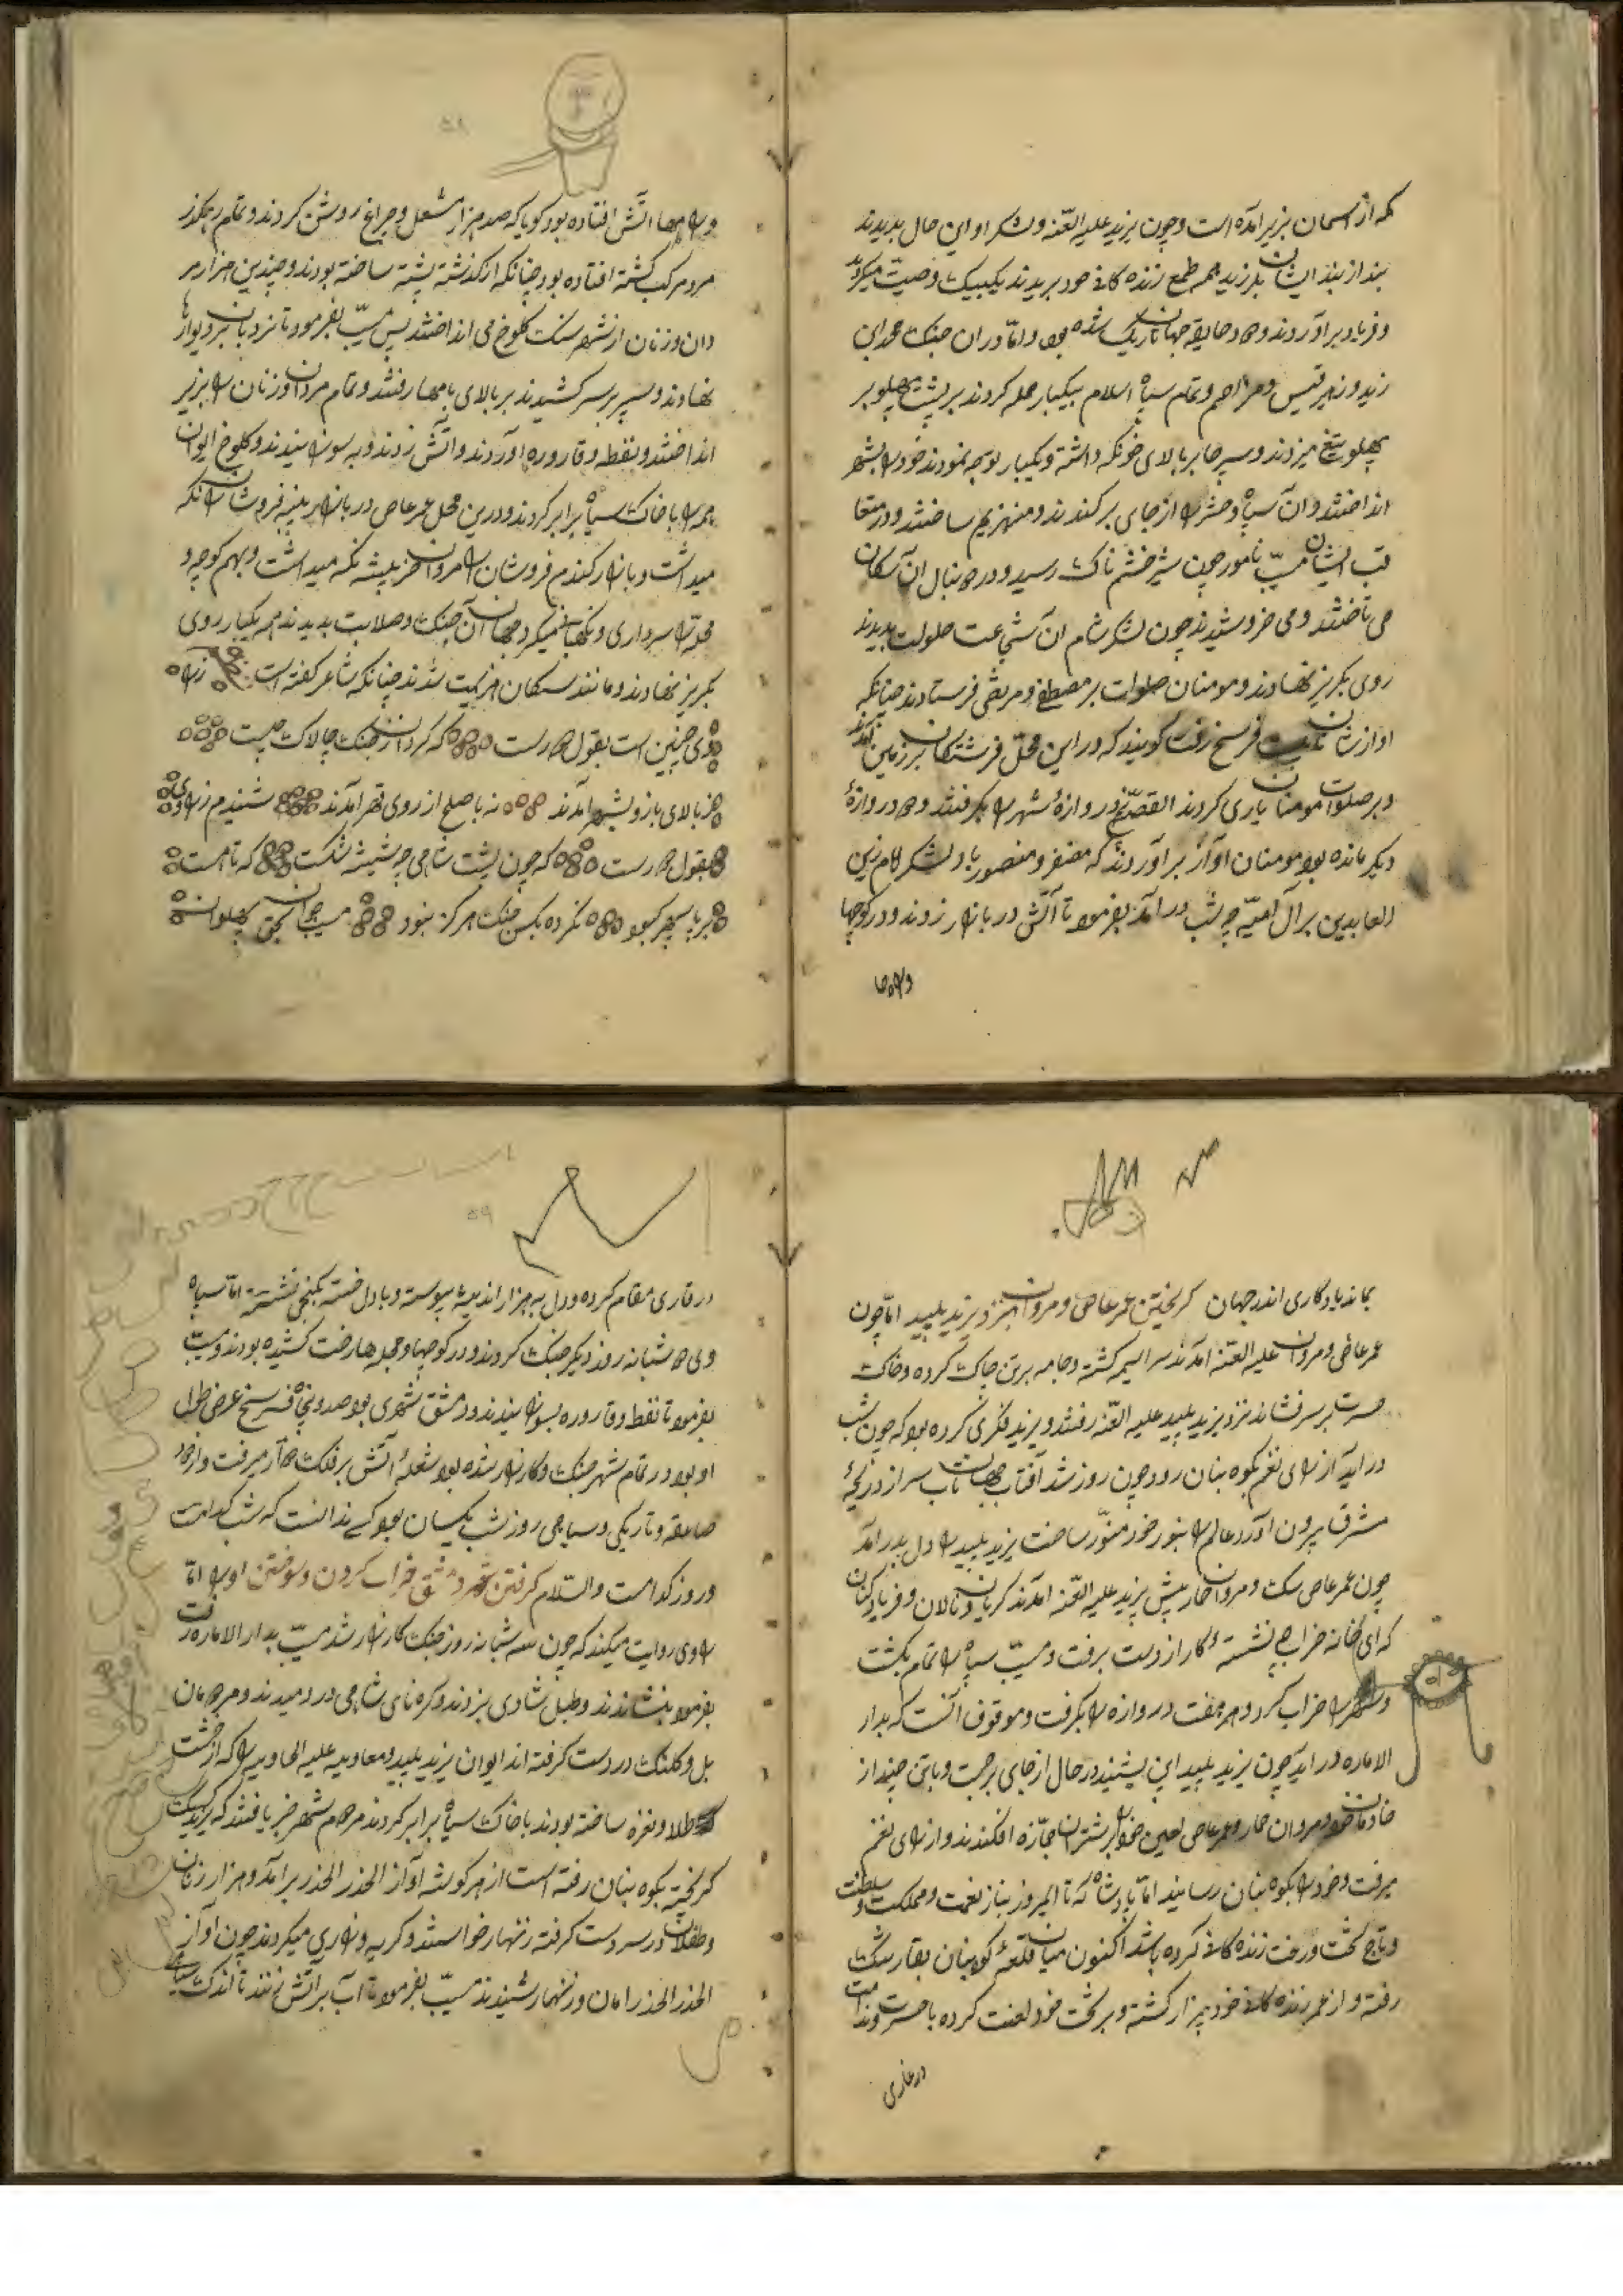 که از آسمان بزیر آمده است و چون یزید علیه العنه و لشکر او این حال بدیدند
بند از بند ایشان بلرزید همه طمع زنده کانی خود ببریدند یکبیک وصیت میکردند
و فریاد برآوردند جهان تاریک شده بود و اما دران جنک
زید و زهر قیس و تمام سپاه اسلام بیکبار حمله کردند بر پشت پهلو بر
پهلو تیغ میزدند و سپرها بر بالای داشته و یکبار توجه نمودند خود را بشهر
انداختند و آن سپاه را از جای برکندند و منهزم ساختند و در متعا
قب ایشان مسیّب نامور چون شیر خشم ناک رسید و در دنبال آن سکان
می تاختند و می خروشیدند چون لشکر شام آن شجاعت صلولت بدیدند
روی بکریز نهادند و مومنان صلوات بر مصطفی و مرتضی فرستادند چنانکه
اوازشان فرسخ رفت کویند که در این محل فرشتکان بر زمین آمدند
و بر صلوات مومنان یاری کردند القصّه دروازهٔ شهر را بکرفتند و دروازهٔ
دیکر مانده بود مومنان آواز برآوردند که مضفر و منصور باد لشکر امام زین
العابدین بر آل امیّه چه شب درآمد بفرمود تا آتش در بازار زدند و در کوچها

و راهها آتش افتاده بود کویا که صد هزار مشعل و چراغ روشن کردند و تمام رهکذر
مرد مرکب کشته افتاده بود چنانکه از کذشته پشته ساخته بودند و چندین هزار مر
دان و زنان از شهر سنک کلوخ می انداختند پس مسیّب بفرمود تا نردبان بر دیوارها
نهادند و سپر بر سر کشیدند بر بالای بامها رفتند و تمام مردان و زنان را بزیر
انداختند و نفطه و قاروره آوردند و آتش زدند و به سوزانیدند و کلوخ ایوان
همه را با خاک سیاه برابر کردند و درین محل عمر عاص در بازار فروشان را نکه
میداشت و بازار کندم فروشان را مروان نکه میداشت و بهم کوچه و
محلّه سرداری و نکهبانی میکرد چون آن جنک و صلابت بدیدند همه یکبار روی
بکریز نهادند و مانند سکان هزیمت شدند چنانکه شاعر کفته است زراو
وی چنین است بقول درست که کردان جنک چالاک چست
ز بالای بازو بشهر آمدند نه با صلح از روی قهر آمدند شنیدم زراوی
بقول درست که چون پشت شامی چه شیشه شکست که تا هست
بر پا سپهر کبود نکرده بکس جنک هرکز نبود مسیب جوان بحق پهلوان

بماند یادکاری اندر جهان کریختن عمر عاص و مروان نزد یزید پلید اما چون
عمر عاص و مروان علیه العنه آمدند سراسیمه کشته و جامه بر تن چاک کرده و خاک
حسرت بر سر فشاند نزد یزید پلید علیه العنه رفتند و یزید فکری کرده بود که چون شب
در آید از راه نغم بکوه بنان رود چون روز شد آفتاب جهان تاب سر از دریچهٔ
مشرق بیرون آورد عالم را بنور خود منوّر ساخت یزید پلید را دل بدر آمد
چون عمر عاص سک و مروان حمار پیش یزید علیه العنه آمدند کریان و نالان و فریاد کنان
که ای خانه خراب چه نشسته و کار از دست برفت و مسیّب سپاه را تمام بکشت
و شهر را خراب کرد و هر هفت دروازه را بکرفت و موقوف آنست که بدار
الاماره در آید چون یزید پلید این بشنید در حال از جای برجست و با تنی چند از
خادمان خود و مروان حمار و عمر عاص لعین خود را بر شتران جمّازه افکندند و از راه نغم
میرفت و خود را بکوه بنان رسانید اما پادشاه که تا امروز بناز نعمت و مملکت و سلطنت
و تاج تخت و رخت زنده کانی کرده باشد اکنون میان قلعهٔ کوه بنان بغار سنک
رفته و از عمر زنده کانی خود بیزار کشته و بر بخت خود لعنت کرده با حسرت و ندامت
در غاری

۵۹
در غاری مقام کرده و دل به هزار اندیشه پیوسته و با دل خسته بکنجی نشسته امّا سپاه
وی شبانه روز دیکر جنک کردند و در کوچها و محلها رخت کشیده بودند و مسیّب
بفرمود تا نفط و قاروره بسوزانیدند و دمشق شهری بود صد و پنجاه فرسخ عرض طول
او بود در تمام شهر جنک و کارزار شده بود شعلهٔ آتش بر فلک میرفت و از دود
صاعقه و تاریکی و سیاهی روز شب یکسان بود کسی ندانست که شب کدامست
و روز کدامست والسّلام کرفتن شهر دمشق خراب کردن و سوختن او را امّا
راوی روایت میکند که چون سه شبانه روز جنک کارزار شد مسیّب بدار الاماره رفت
بفرمود بنشاندند و طبل شادی بزدند و کره نای شاهی در دمیدند و مردمان
بل و کلنک در دست کرفته اند ایوان یزید پلید و معاویه علیه الهاویه را که از خشت
طلا و نقره ساخته بودند با خاک سیاه برابر کردند مردم شهر خبر یافتند که یزید سک
کریخته بکوه بنان رفته است از هر کوشه آواز الحذر الحذر برآمد و هزار زنان
و طفلان در سر دست کرفته زنهار خواستند و کریه و زاری میکردند چون آواز
الحذر الحذر امان و زنهار شنیدند مسیّب بفرمود تا آب بر آتش زنند تا اندک سیاهی